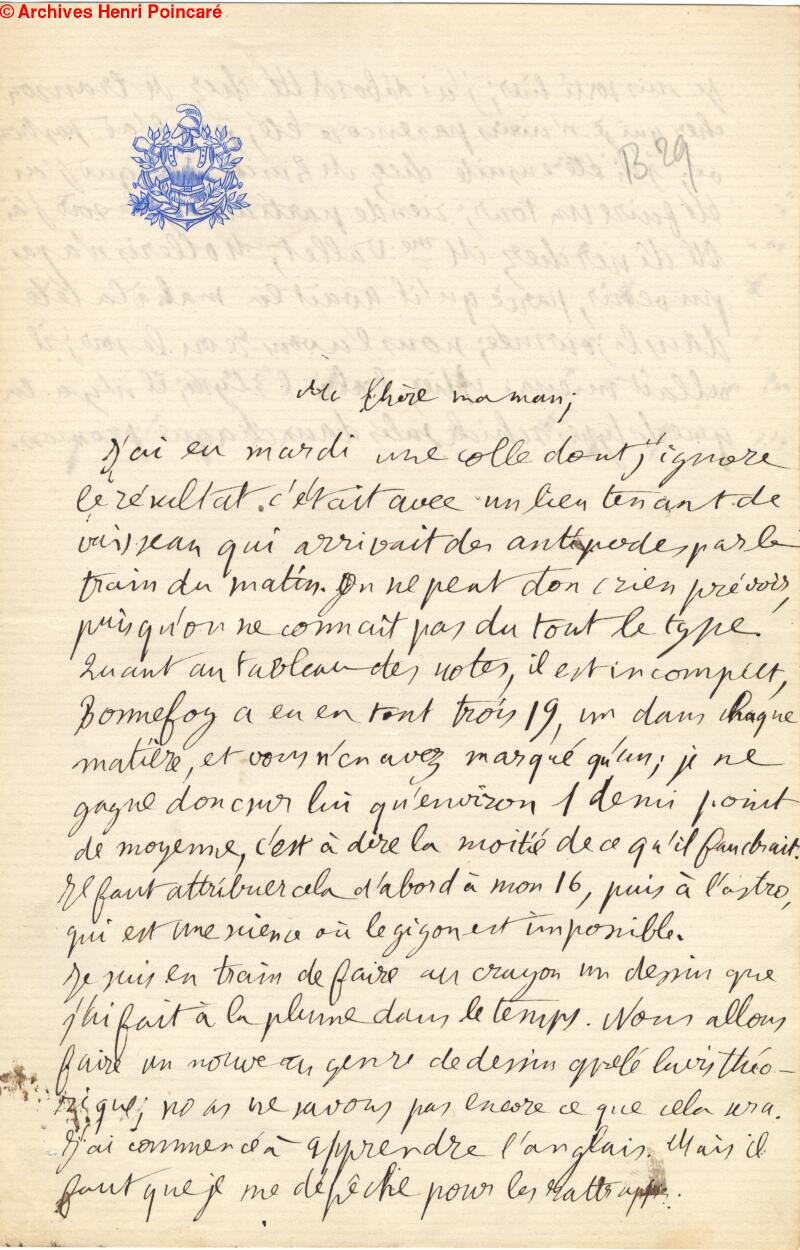 © Archives Henri Poincaré
B 29
Ma Chère maman,
J'ai eu mardi une colle dont j'ignore
le résultat. c'était avec un lieutenant de
vaisseau qui arrivait des antipodes par le
train du matin. On ne peut donc rien prévoir,
puisqu'on ne connait pas du tout le type.
Quant au tableau des notes, il est incomplet,
Bonnefoy a eu en tout trois 19, un dans chaque
matière, et vous n'en avez marqué qu'un; je ne
gagne donc sur lui qu'environ 1 demi point
de moyenne, c'est à dire la moitié de ce qu'il faudrait.
Il faut attribuer cela d'abord à mon 16, puis à l'astro,
qui est une science où le gigon est impossible.
Je suis en train de faire au crayon un dessin que
j'ai fait à la plume dans le temps. Nous allons
faire un nouveau genre de dessin appelé lavis théo-
rique; nous ne savons pas encore ce que cela sera.
J'ai commencé à apprendre l'anglais. Mais il
faut que je me dépêche pour les rattraper.